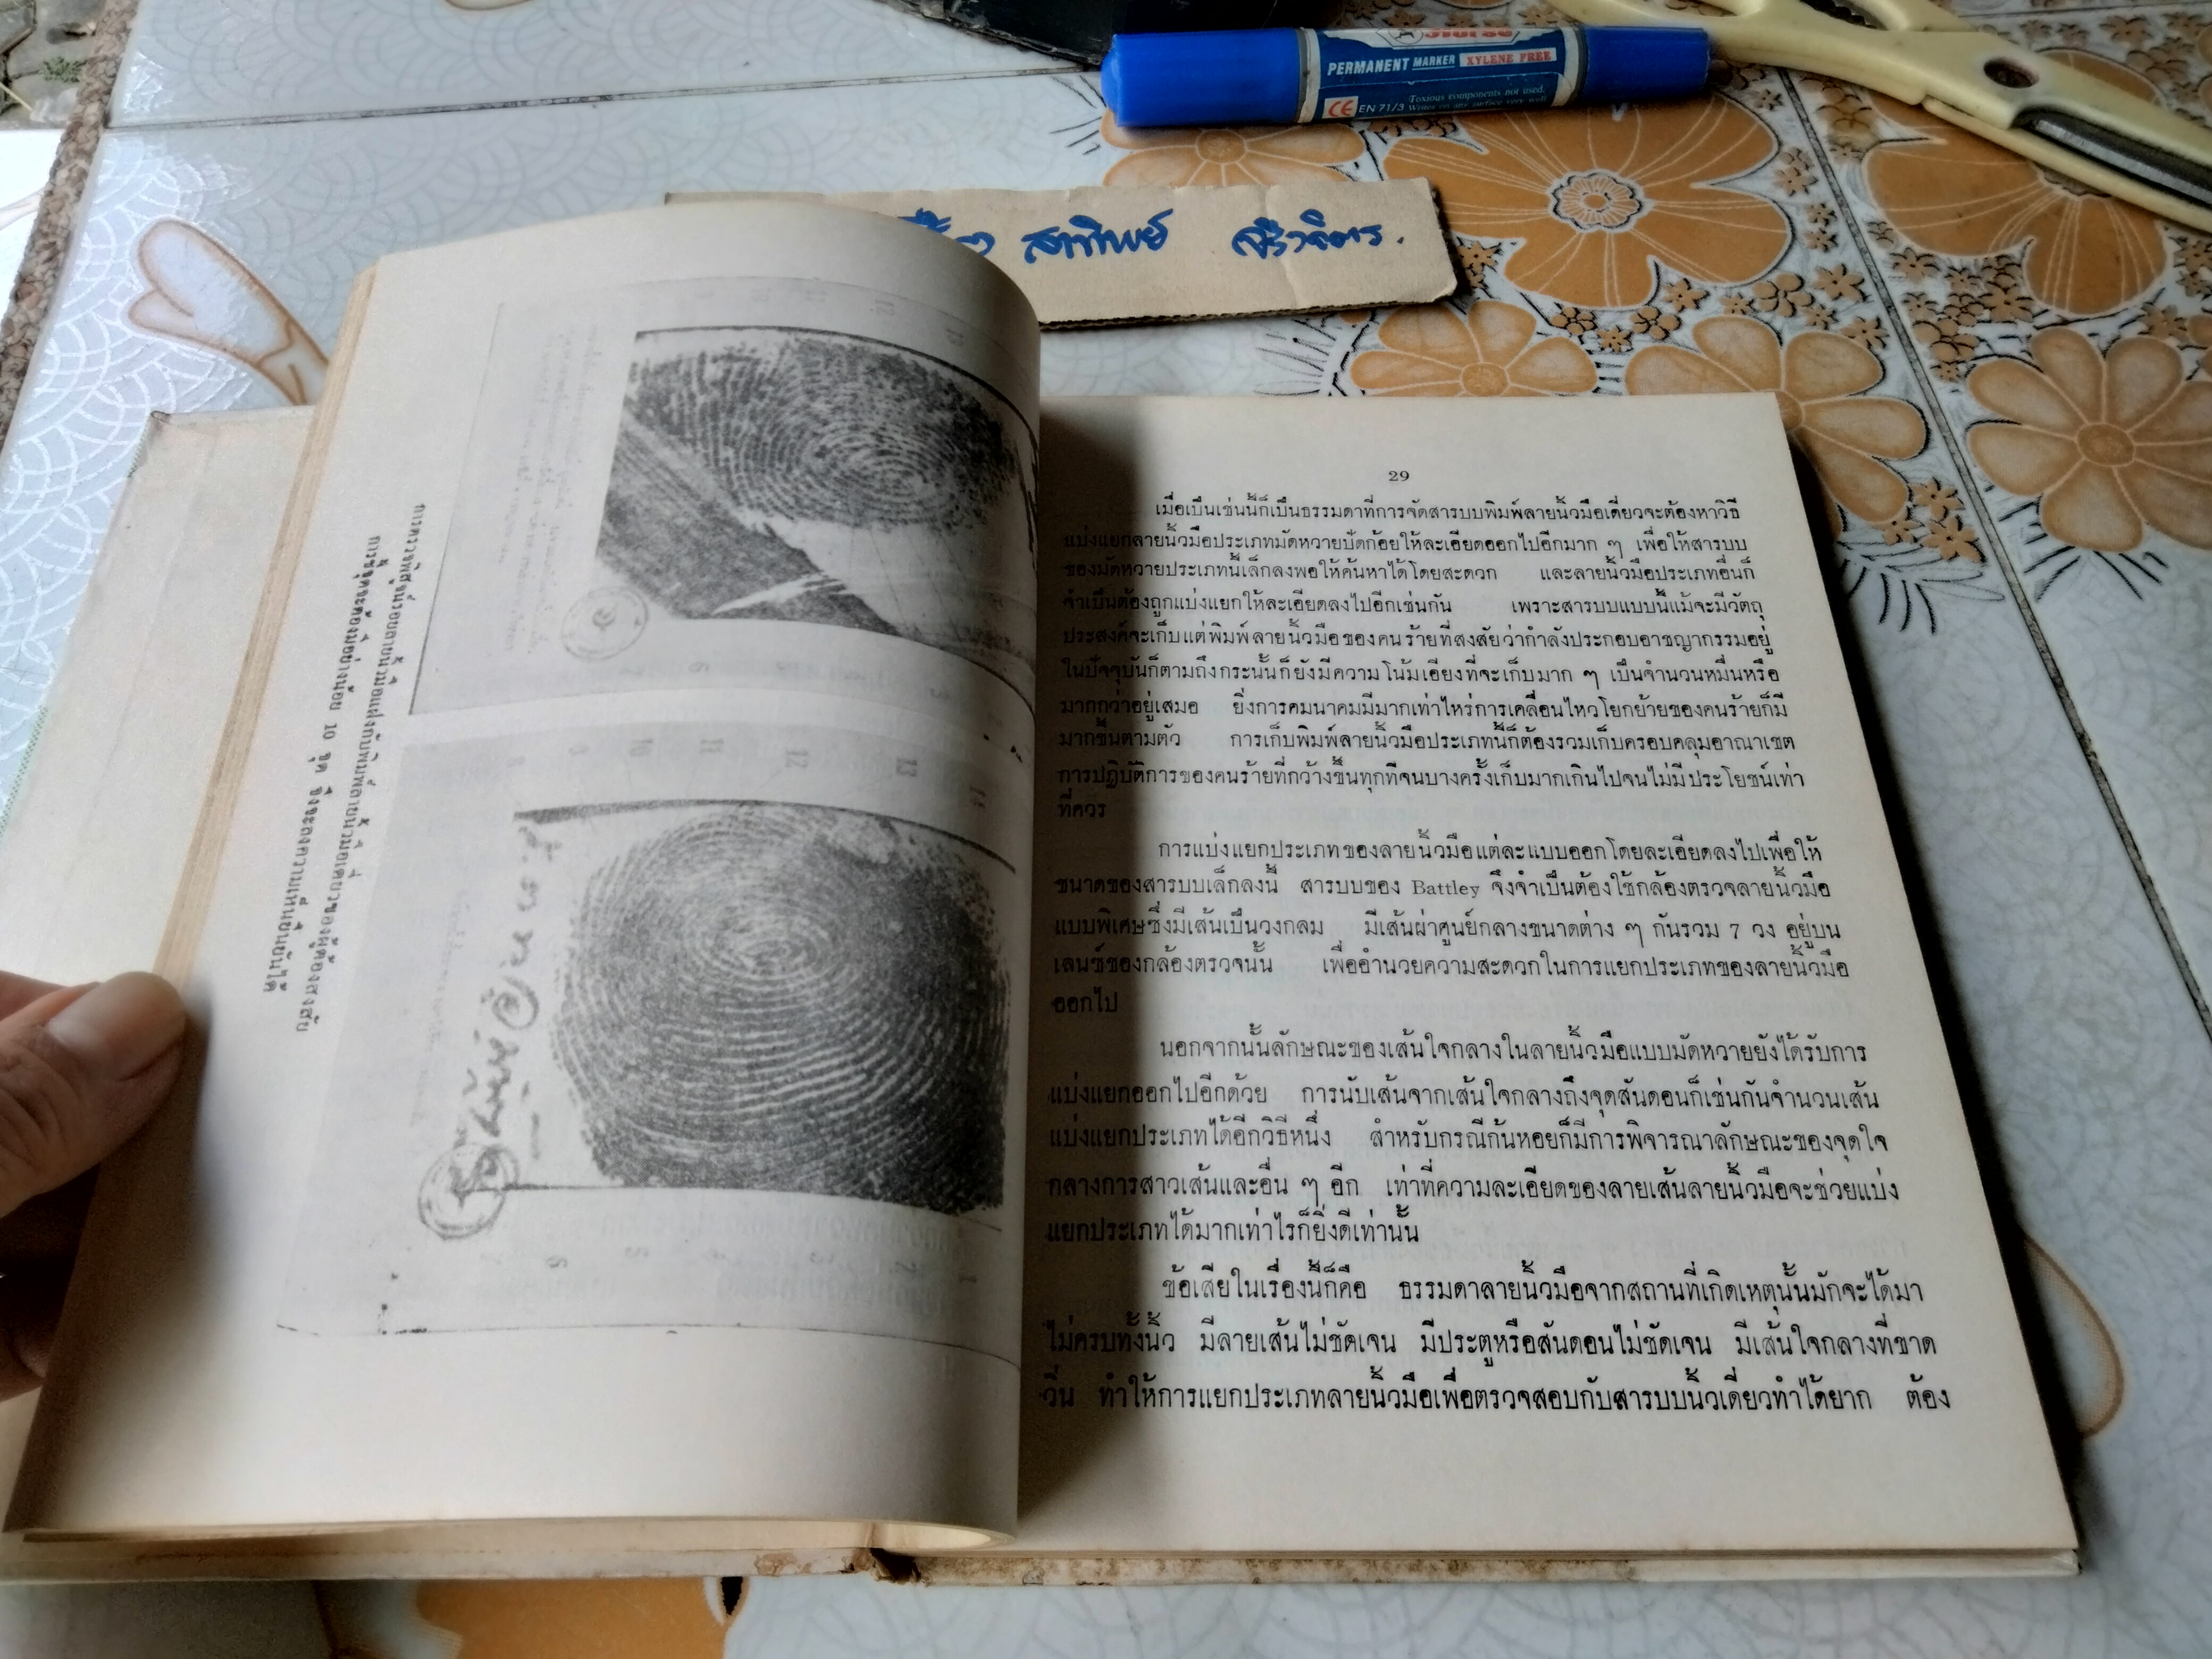 Horse
PERMANENT MARKER XYLENE FREE
CE EN 71/3 Toxious components not used.
Writes on any surface very well
สาทิพย์
29
เมื่อเป็นเช่นนี้ก็เป็นธรรมดาที่การจัดสารบบพิมพ์ลายนิ้วมือเดี่ยวจะต้องหาวิธี
แบ่งแยกลายนิ้วมือประเภทมัดหวายปัดก้อยให้ละเอียดออกไปอีกมาก ๆ เพื่อให้สารบบ
ของมัดหวายประเภทนี้เล็กลงพอให้ค้นหาได้โดยสะดวก และลายนิ้วมือประเภทอื่นก็
จำเป็นต้องถูกแบ่งแยกให้ละเอียดลงไปอีกเช่นกัน เพราะสารบบแบบนี้แม้จะมีวัตถุ
ประสงค์จะเก็บแต่พิมพ์ลายนิ้วมือของคนร้ายที่สงสัยว่ากำลังประกอบอาชญากรรมอยู่
ในปัจจุบันก็ตามถึงกระนั้นก็ยังมีความโน้มเอียงที่จะเก็บมาก ๆ เป็นจำนวนหมื่นหรือ
มากกว่าอยู่เสมอ ยิ่งการคมนาคมมีมากเท่าไหร่การเคลื่อนไหวโยกย้ายของคนร้ายก็มี
มากขึ้นตามตัว การเก็บพิมพ์ลายนิ้วมือประเภทนี้ก็ต้องรวมเก็บครอบคลุมอาณาเขต
การปฏิบัติการของคนร้ายที่กว้างขึ้นทุกทีจนบางครั้งเก็บมากเกินไปจนไม่มีประโยชน์เท่า
ที่ควร
การแบ่งแยกประเภทของลายนิ้วมือแต่ละแบบออกโดยละเอียดลงไปเพื่อให้
ขนาดของสารบบเล็กลงนี้ สารบบของ Battley จึงจำเป็นต้องใช้กล้องตรวจลายนิ้วมือ
แบบพิเศษซึ่งมีเส้นเป็นวงกลม มีเส้นผ่าศูนย์กลางขนาดต่าง ๆ กันรวม 7 วง อยู่บน
เลนซ์ของกล้องตรวจนั้น เพื่ออำนวยความสะดวกในการแยกประเภทของลายนิ้วมือ
ออกไป
นอกจากนั้นลักษณะของเส้นใจกลางในลายนิ้วมือแบบมัดหวายยังได้รับการ
แบ่งแยกออกไปอีกด้วย การนับเส้นจากเส้นใจกลางถึงจุดสันดอนก็เช่นกันจำนวนเส้น
แบ่งแยกประเภทได้อีกวิธีหนึ่ง สำหรับกรณีก้นหอยก็มีการพิจารณาลักษณะของจุดใจ
กลางการสาวเส้นและอื่น ๆ อีก เท่าที่ความละเอียดของลายเส้นลายนิ้วมือจะช่วยแบ่ง
แยกประเภทได้มากเท่าไรก็ยิ่งดีเท่านั้น
ข้อเสียในเรื่องนี้ก็คือ ธรรมดาลายนิ้วมือจากสถานที่เกิดเหตุนั้นมักจะได้มา
ไม่ครบทั้งนิ้ว มีลายเส้นไม่ชัดเจน มีประตูหรือสันดอนไม่ชัดเจน มีเส้นใจกลางที่ขาด
วิ่น ทำให้การแยกประเภทลายนิ้วมือเพื่อตรวจสอบกับสารบบนิ้วเดี่ยวทำได้ยาก ต้อง
การตรวจพิสูจน์รอยลายนิ้วมือแฝงกับพิมพ์ลายนิ้วมือเดี่ยวของผู้ต้องสงสัย
การชี้จุดจะต้องมีอย่างน้อย 10 จุด จึงจะลงความเห็นยืนยันได้